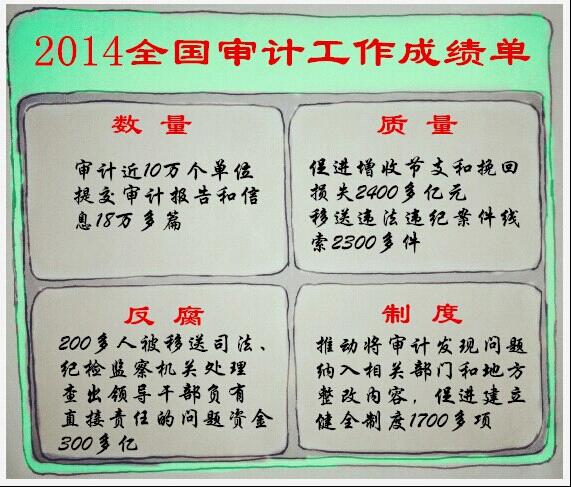 2014全国审计工作成绩单
数 量
审计近10万个单位
提交审计报告和信
息18万多篇
质 量
促进增收节支和挽回
损失2400多亿元
移送违法违纪案件线
索2300多件
反 腐
200多人被移送司法、
纪检监察机关处理
查出领导干部负有
直接责任的问题资金
300多亿
制 度
推动将审计发现问题
纳入相关部门和地方
整改内容，促进建立
健全制度1700多项